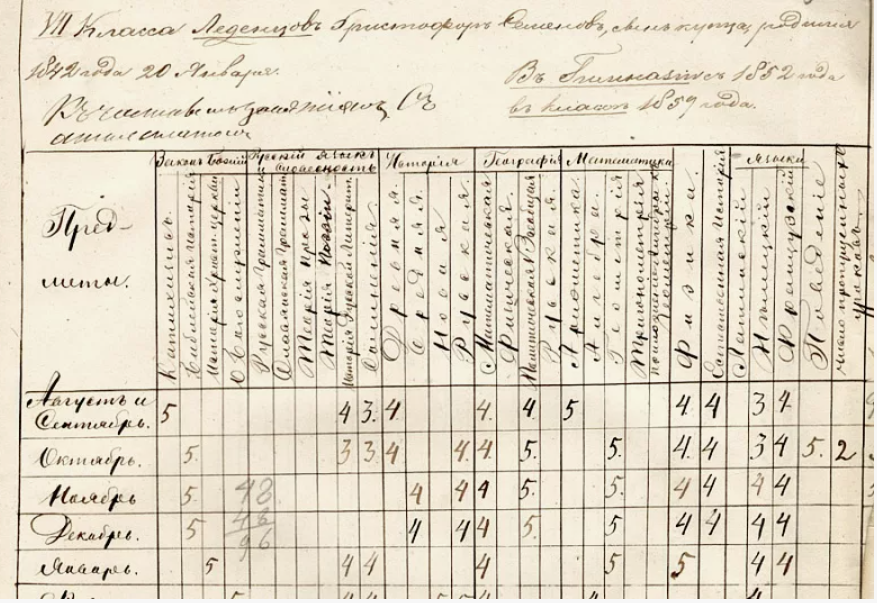 VII Класса Леденцовъ Христофоръ Семеновъ, сынъ купца, родился
1842 года 20 Января.
Въ Гимназіи съ 1852 года
въ классѣ 1859 года.
Законъ Божій Русскій языкъ и словесность Исторія Географія Математика Языки
Предметы.
Катихизисъ.
Библейская Исторія
Исторія Христ. церкви
О Богослуженіи
Русская Грамматика
Славянская Граммат
Теорія прозы
Теорія Поэзіи.
Исторія Русской Литерат.
Сочиненія
Древняя.
Средняя.
Новая
Русская
Математическая
Физическая.
Политическая Всеобщая
Русская.
Ариѳметика.
Алгебра.
Геометрія
Тригонометрія
Физика.
Естественная Исторія
Латинскій
Нѣмецкій
Французскій
Поведеніе
Число пропущенныхъ уроковъ.
Августъ и Сентябрь. 5 4 3. 4 4. 4. 5 4. 4 3 4.
Октябрь. 5. 3 3 4 4. 4. 5. 5. 4. 4 3 4 5. 2
Ноябрь 5. 4 4 4 5. 5. 4 4 4 4
48
Декабрь. 5 4 4 4 5. 5 4 4 4 4
48
96
Январь. 5 4 4 4 5 5 4 4